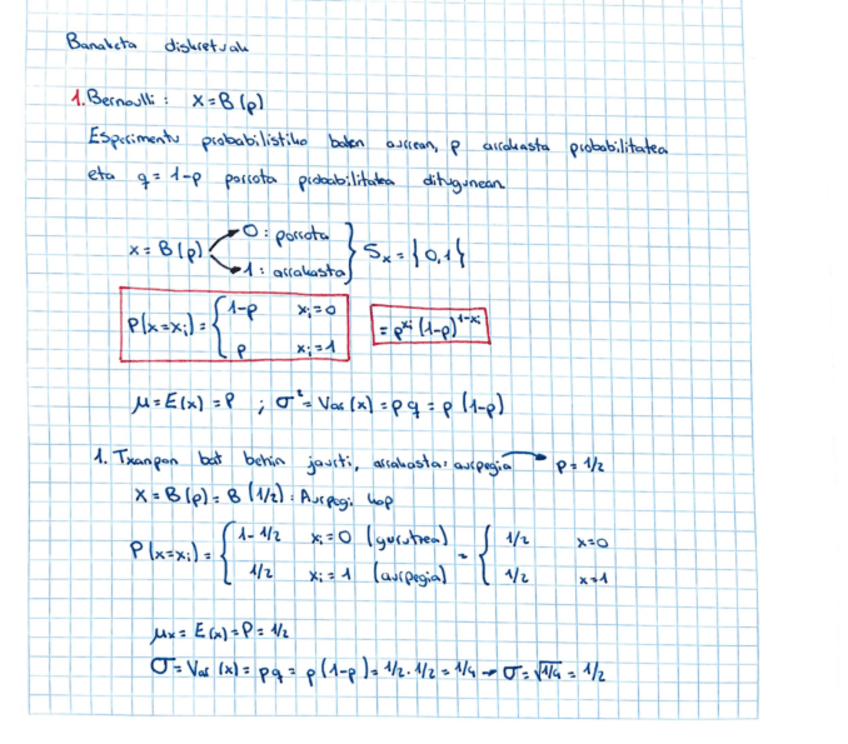 Banaketa diskretuak
1. Bernoulli : X = B(p)
Esperimentu probabilistiko baten aurrean, p arrakasta probabilitatea
eta q = 1-p porrota probabilitatea ditugunean.
x = B(p) 0 : porrota } Sx = {0,1}
1 : arrakasta
P(x=xi) = { 1-p xi=0
p xi=1
= p^xi (1-p)^1-xi
μ = E(x) = P ; σ² = Var(x) = pq = p(1-p)
1. Txanpon bat behin jaurti, arrakasta: aurpegia → p = 1/2
X = B(p) = B(1/2) : Aurpegi kop
P(x=xi) = { 1-1/2 xi=0 (gurutzea) = { 1/2 x=0
1/2 xi=1 (aurpegia) 1/2 x=1
μx = E(x) = P = 1/2
σ = Var(x) = pq = p(1-p) = 1/2 · 1/2 = 1/4 → σ = √1/4 = 1/2